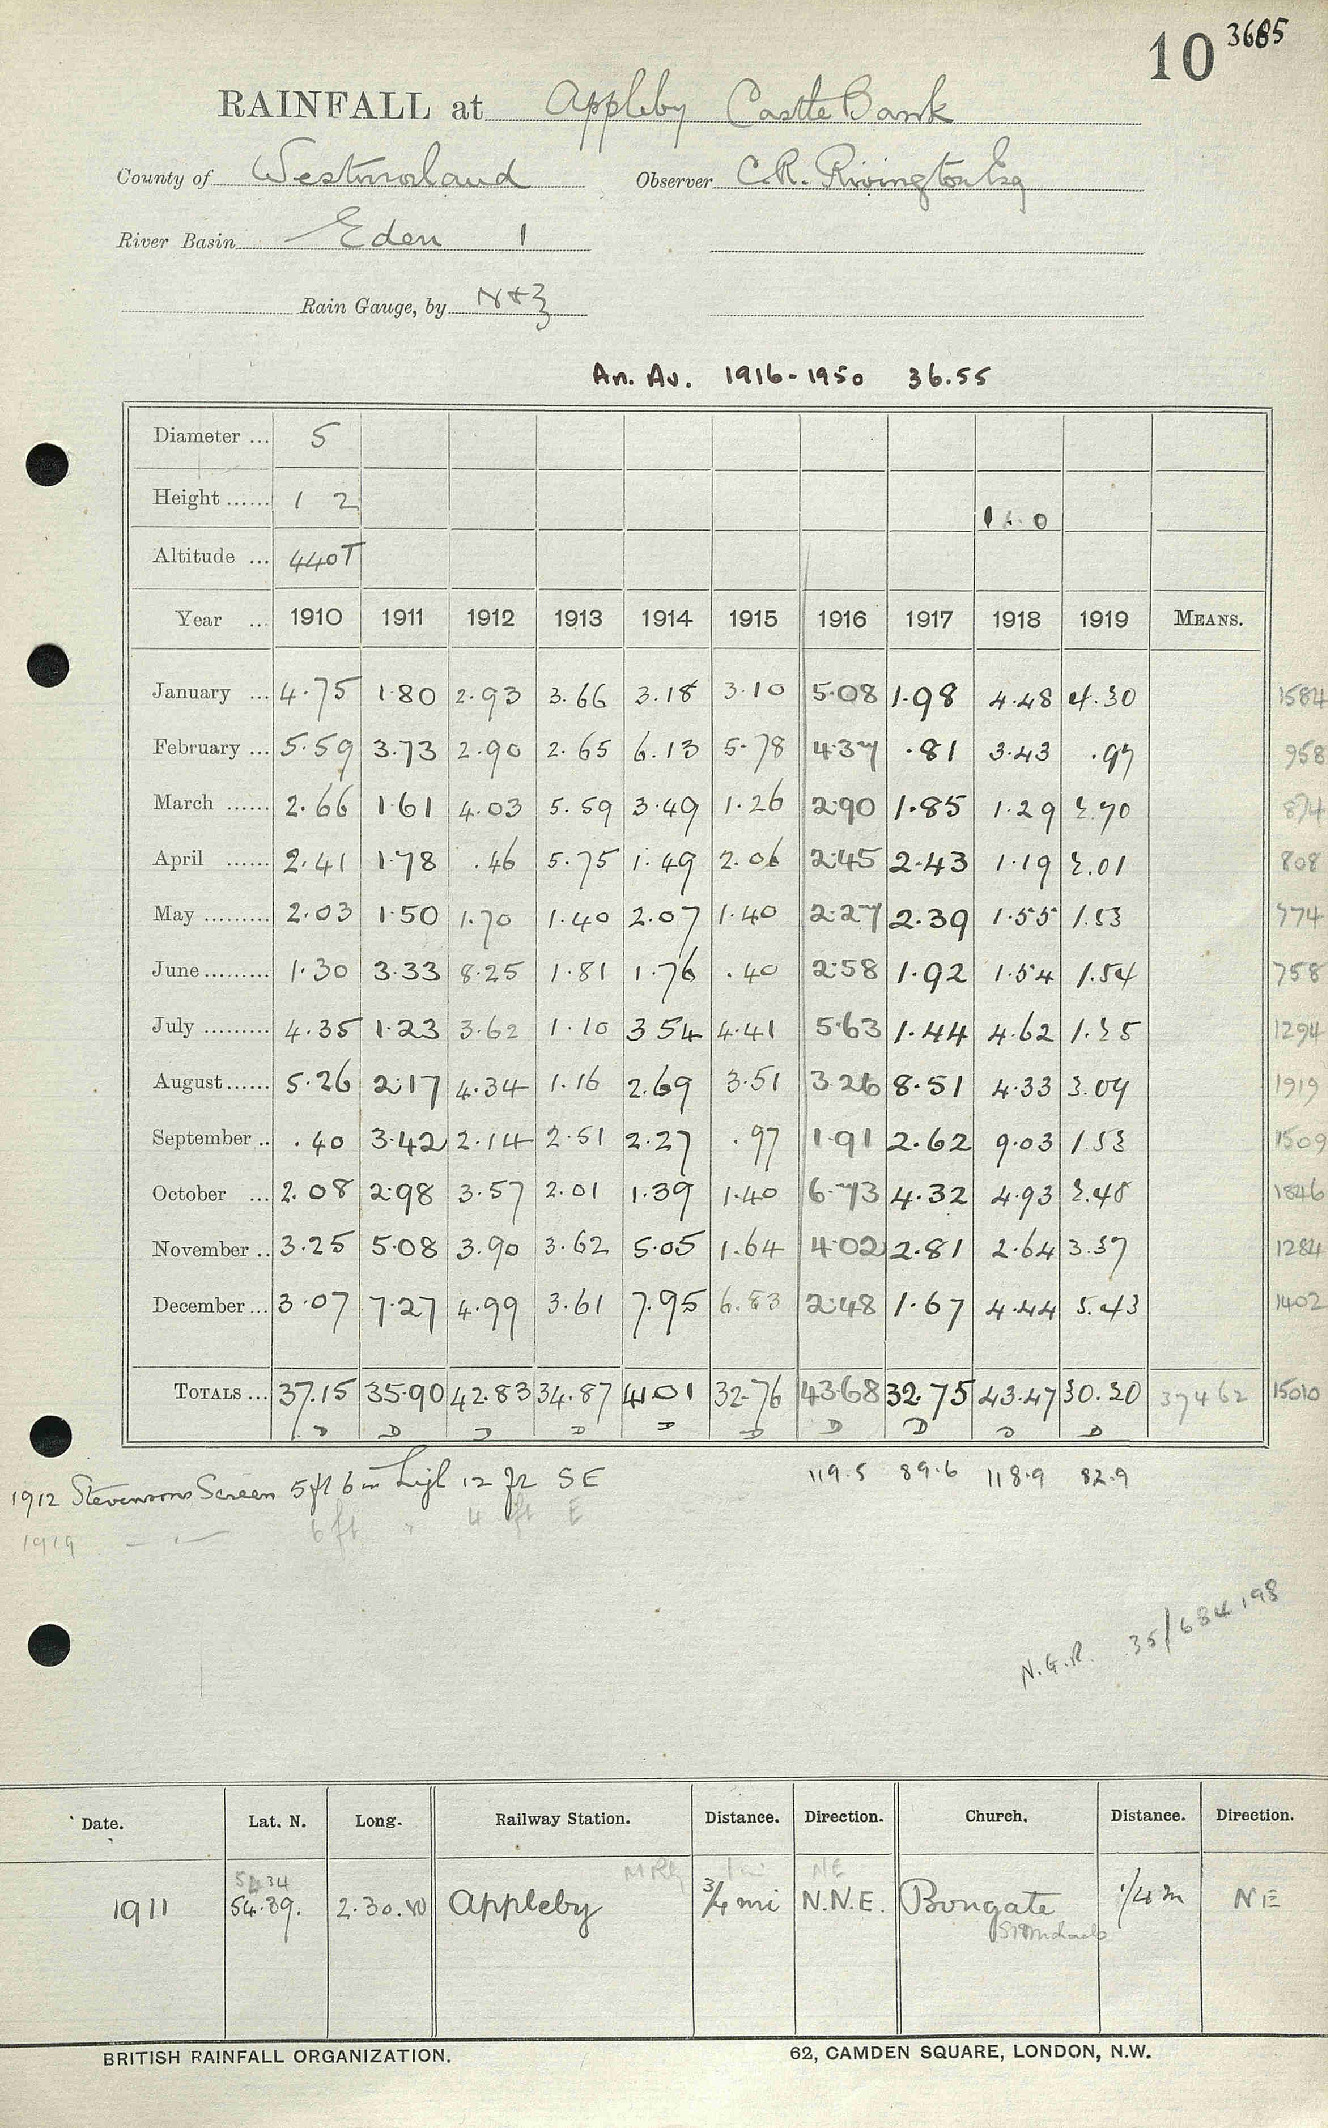 10 3685
RAINFALL at Appleby Castle Bank
County of Westmorland Observer C.R. Rivington Esq
River Basin Eden 1
Rain Gauge, by N+Z
An. Av. 1916-1950 36.55
Diameter ... 5
Height ...... 1 2 1 0
Altitude ... 440T
Year ... 1910 1911 1912 1913 1914 1915 1916 1917 1918 1919 MEANS.
January ... 4.75 1.80 2.93 3.66 3.18 3.10 5.08 1.98 4.48 4.30 1584
February ... 5.59 3.73 2.90 2.65 6.13 5.78 4.37 .81 3.43 .97 958
March ...... 2.66 1.61 4.03 5.59 3.49 1.26 2.90 1.85 1.29 2.70 874
April ...... 2.41 1.78 .46 5.75 1.49 2.06 2.45 2.43 1.19 2.01 808
May ......... 2.03 1.50 1.70 1.40 2.07 1.40 2.27 2.39 1.55 1.53 774
June ......... 1.30 3.33 8.25 1.81 1.76 .40 2.58 1.92 1.54 1.54 758
July ......... 4.35 1.23 3.62 1.10 3.54 4.41 5.63 1.44 4.62 1.25 1294
August ...... 5.26 2.17 4.34 1.16 2.69 3.51 3.26 8.51 4.33 3.09 1919
September .. .40 3.42 2.14 2.51 2.27 .97 1.91 2.62 9.03 1.53 1509
October ... 2.08 2.98 3.57 2.01 1.39 1.40 6.73 4.32 4.93 2.48 1846
November .. 3.25 5.08 3.90 3.62 5.05 1.64 4.02 2.81 2.64 3.37 1284
December ... 3.07 7.27 4.99 3.61 7.95 6.83 2.48 1.67 4.44 5.43 1402
TOTALS ... 37.15 35.90 42.83 34.87 41.01 32.76 43.68 32.75 43.47 30.20 37462 15010
D D D D D D D D D D
119.5 89.6 118.9 82.9
1912 Stevensons Screen 5ft 6in high 12 ft SE
1919 — — 6 ft " 4 ft E
N.G.R. 35/684198
Date. Lat. N. Long. Railway Station. Distance. Direction. Church. Distance. Direction.
54 34 M Rly 1 mi NE
1911 54.39. 2.30.W Appleby 3/4 mi N.N.E. Bongate 1/4 m NE
St Michaels
BRITISH RAINFALL ORGANIZATION. 62, CAMDEN SQUARE, LONDON, N.W.